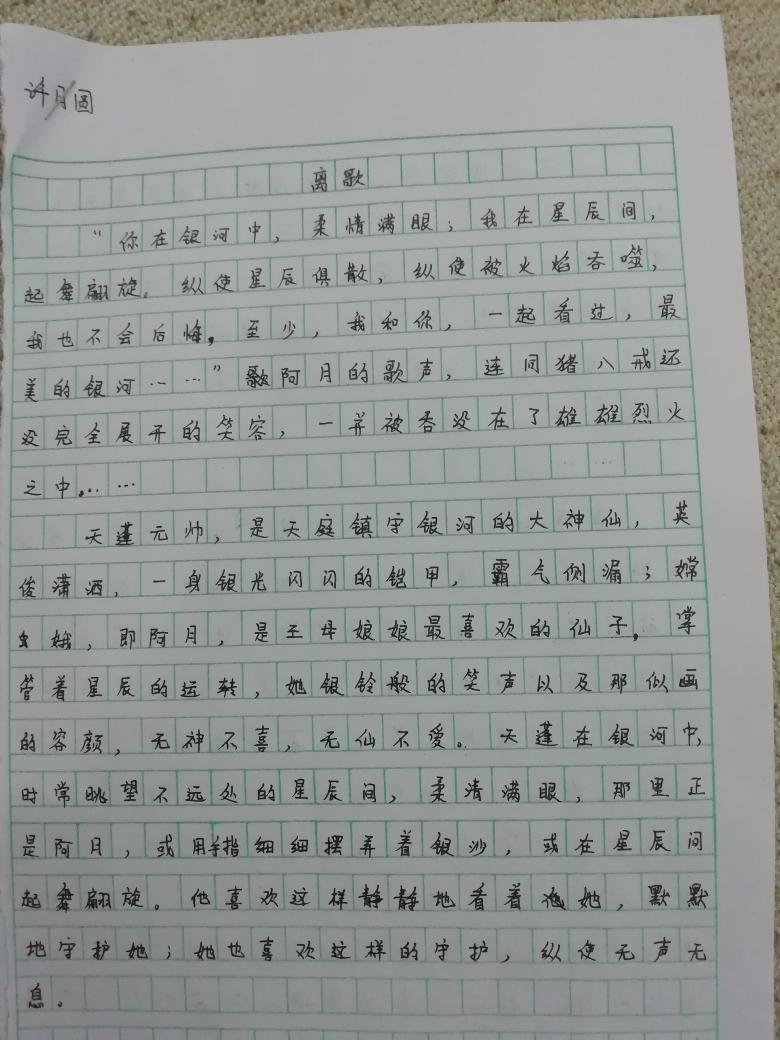 许月圆
离歌
“你在银河中，柔情满眼；我在星辰间，
起舞翩旋。纵使星辰俱散，纵使被火焰吞噬，
我也不会后悔。至少，我和你，一起看过，最
美的银河……”歌阿月的歌声，连同猪八戒还
没完全展开的笑容，一并被吞没在了雄雄烈火
之中。……
天蓬元帅，是天庭镇守银河的大神仙，英
俊潇洒，一身银光闪闪的铠甲，霸气侧漏；嫦
娥，即阿月，是王母娘娘最喜欢的仙子。掌
管着星辰的运转，她银铃般的笑声以及那似画
的容颜，无神不喜，无仙不爱。天蓬在银河中，
时常眺望不远处的星辰间，柔清满眼，那里正
是阿月，或用手指细细摆弄着银沙，或在星辰间
起舞翩旋。他喜欢这样静静地看着她，默默
地守护她；她也喜欢这样的守护，纵使无声无
息。